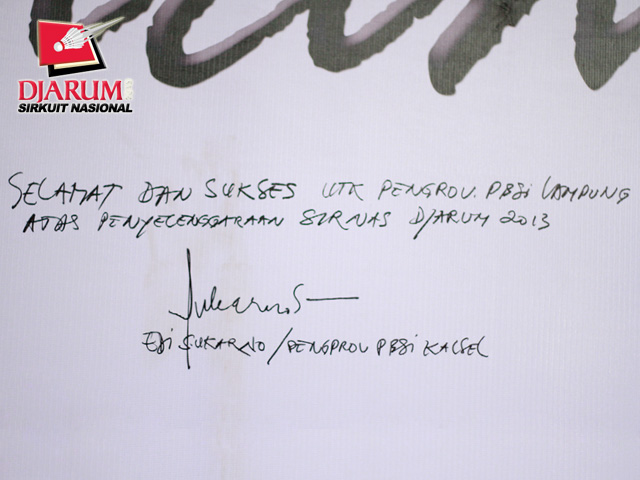 DJARUM
SIRKUIT NASIONAL
SELAMAT DAN SUKSES UTK PENGROV. PBSI LAMPUNG
ATAS PENYELENGGARAAN SIRNAS DJARUM 2013
Sukarno
EDI SUKARNO / PENGPROV PBSI KALSEL